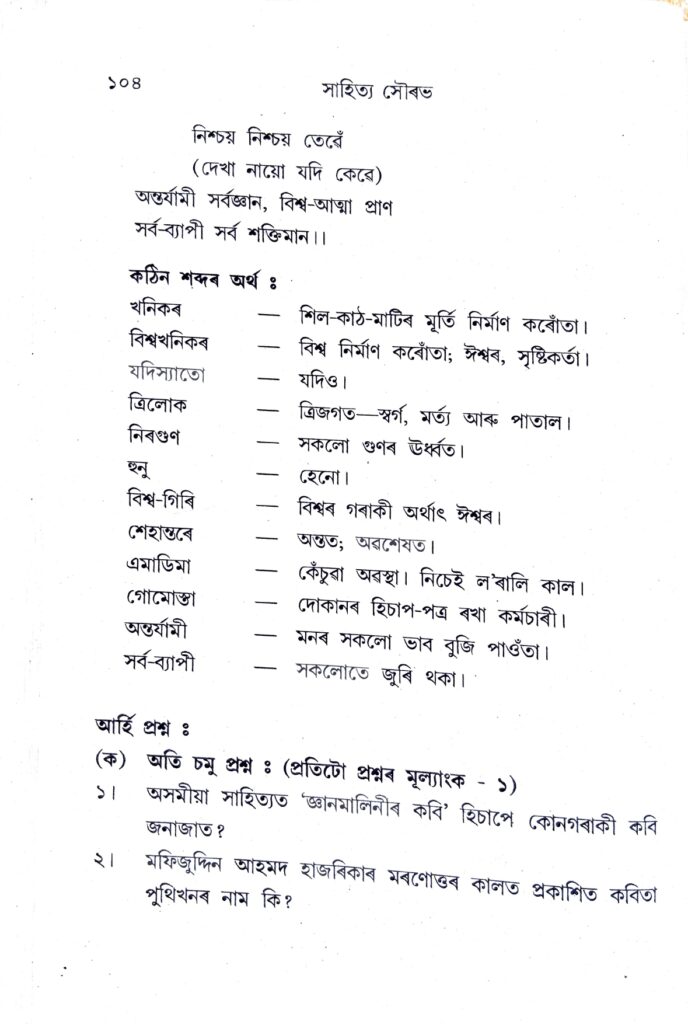 ১০৪ সাহিত্য সৌৰভ
নিশ্চয় নিশ্চয় তেৱেঁ
(দেখা নায়ো যদি কেৱে)
অন্তৰ্যামী সৰ্বজ্ঞান, বিশ্ব-আত্মা প্ৰাণ
সৰ্ব-ব্যাপী সৰ্ব শক্তিমান।।
কঠিন শব্দৰ অৰ্থ ঃ
খনিকৰ — শিল-কাঠ-মাটিৰ মূৰ্তি নিৰ্মাণ কৰোঁতা।
বিশ্বখনিকৰ — বিশ্ব নিৰ্মাণ কৰোঁতা; ঈশ্বৰ, সৃষ্টিকৰ্তা।
যদিস্যাতো — যদিও।
ত্ৰিলোক — ত্ৰিজগত—স্বৰ্গ, মৰ্ত্য আৰু পাতাল।
নিৰগুণ — সকলো গুণৰ ঊৰ্ধ্বত।
হুনু — হেনো।
বিশ্ব-গিৰি — বিশ্বৰ গৰাকী অৰ্থাৎ ঈশ্বৰ।
শেহান্তৰে — অন্তত; অৱশেষত।
এমাডিমা — কেঁচুৱা অৱস্থা। নিচেই ল'ৰালি কাল।
গোমোস্তা — দোকানৰ হিচাপ-পত্ৰ ৰখা কৰ্মচাৰী।
অন্তৰ্যামী — মনৰ সকলো ভাব বুজি পাওঁতা।
সৰ্ব-ব্যাপী — সকলোতে জুৰি থকা।
আৰ্হি প্ৰশ্ন ঃ
(ক) অতি চমু প্ৰশ্ন ঃ (প্ৰতিটো প্ৰশ্নৰ মূল্যাংক - ১)
১। অসমীয়া সাহিত্যত 'জ্ঞানমালিনীৰ কবি' হিচাপে কোনগৰাকী কবি
জনাজাত?
২। মফিজুদ্দিন আহমদ হাজৰিকাৰ মৰণোত্তৰ কালত প্ৰকাশিত কবিতা
পুথিখনৰ নাম কি?